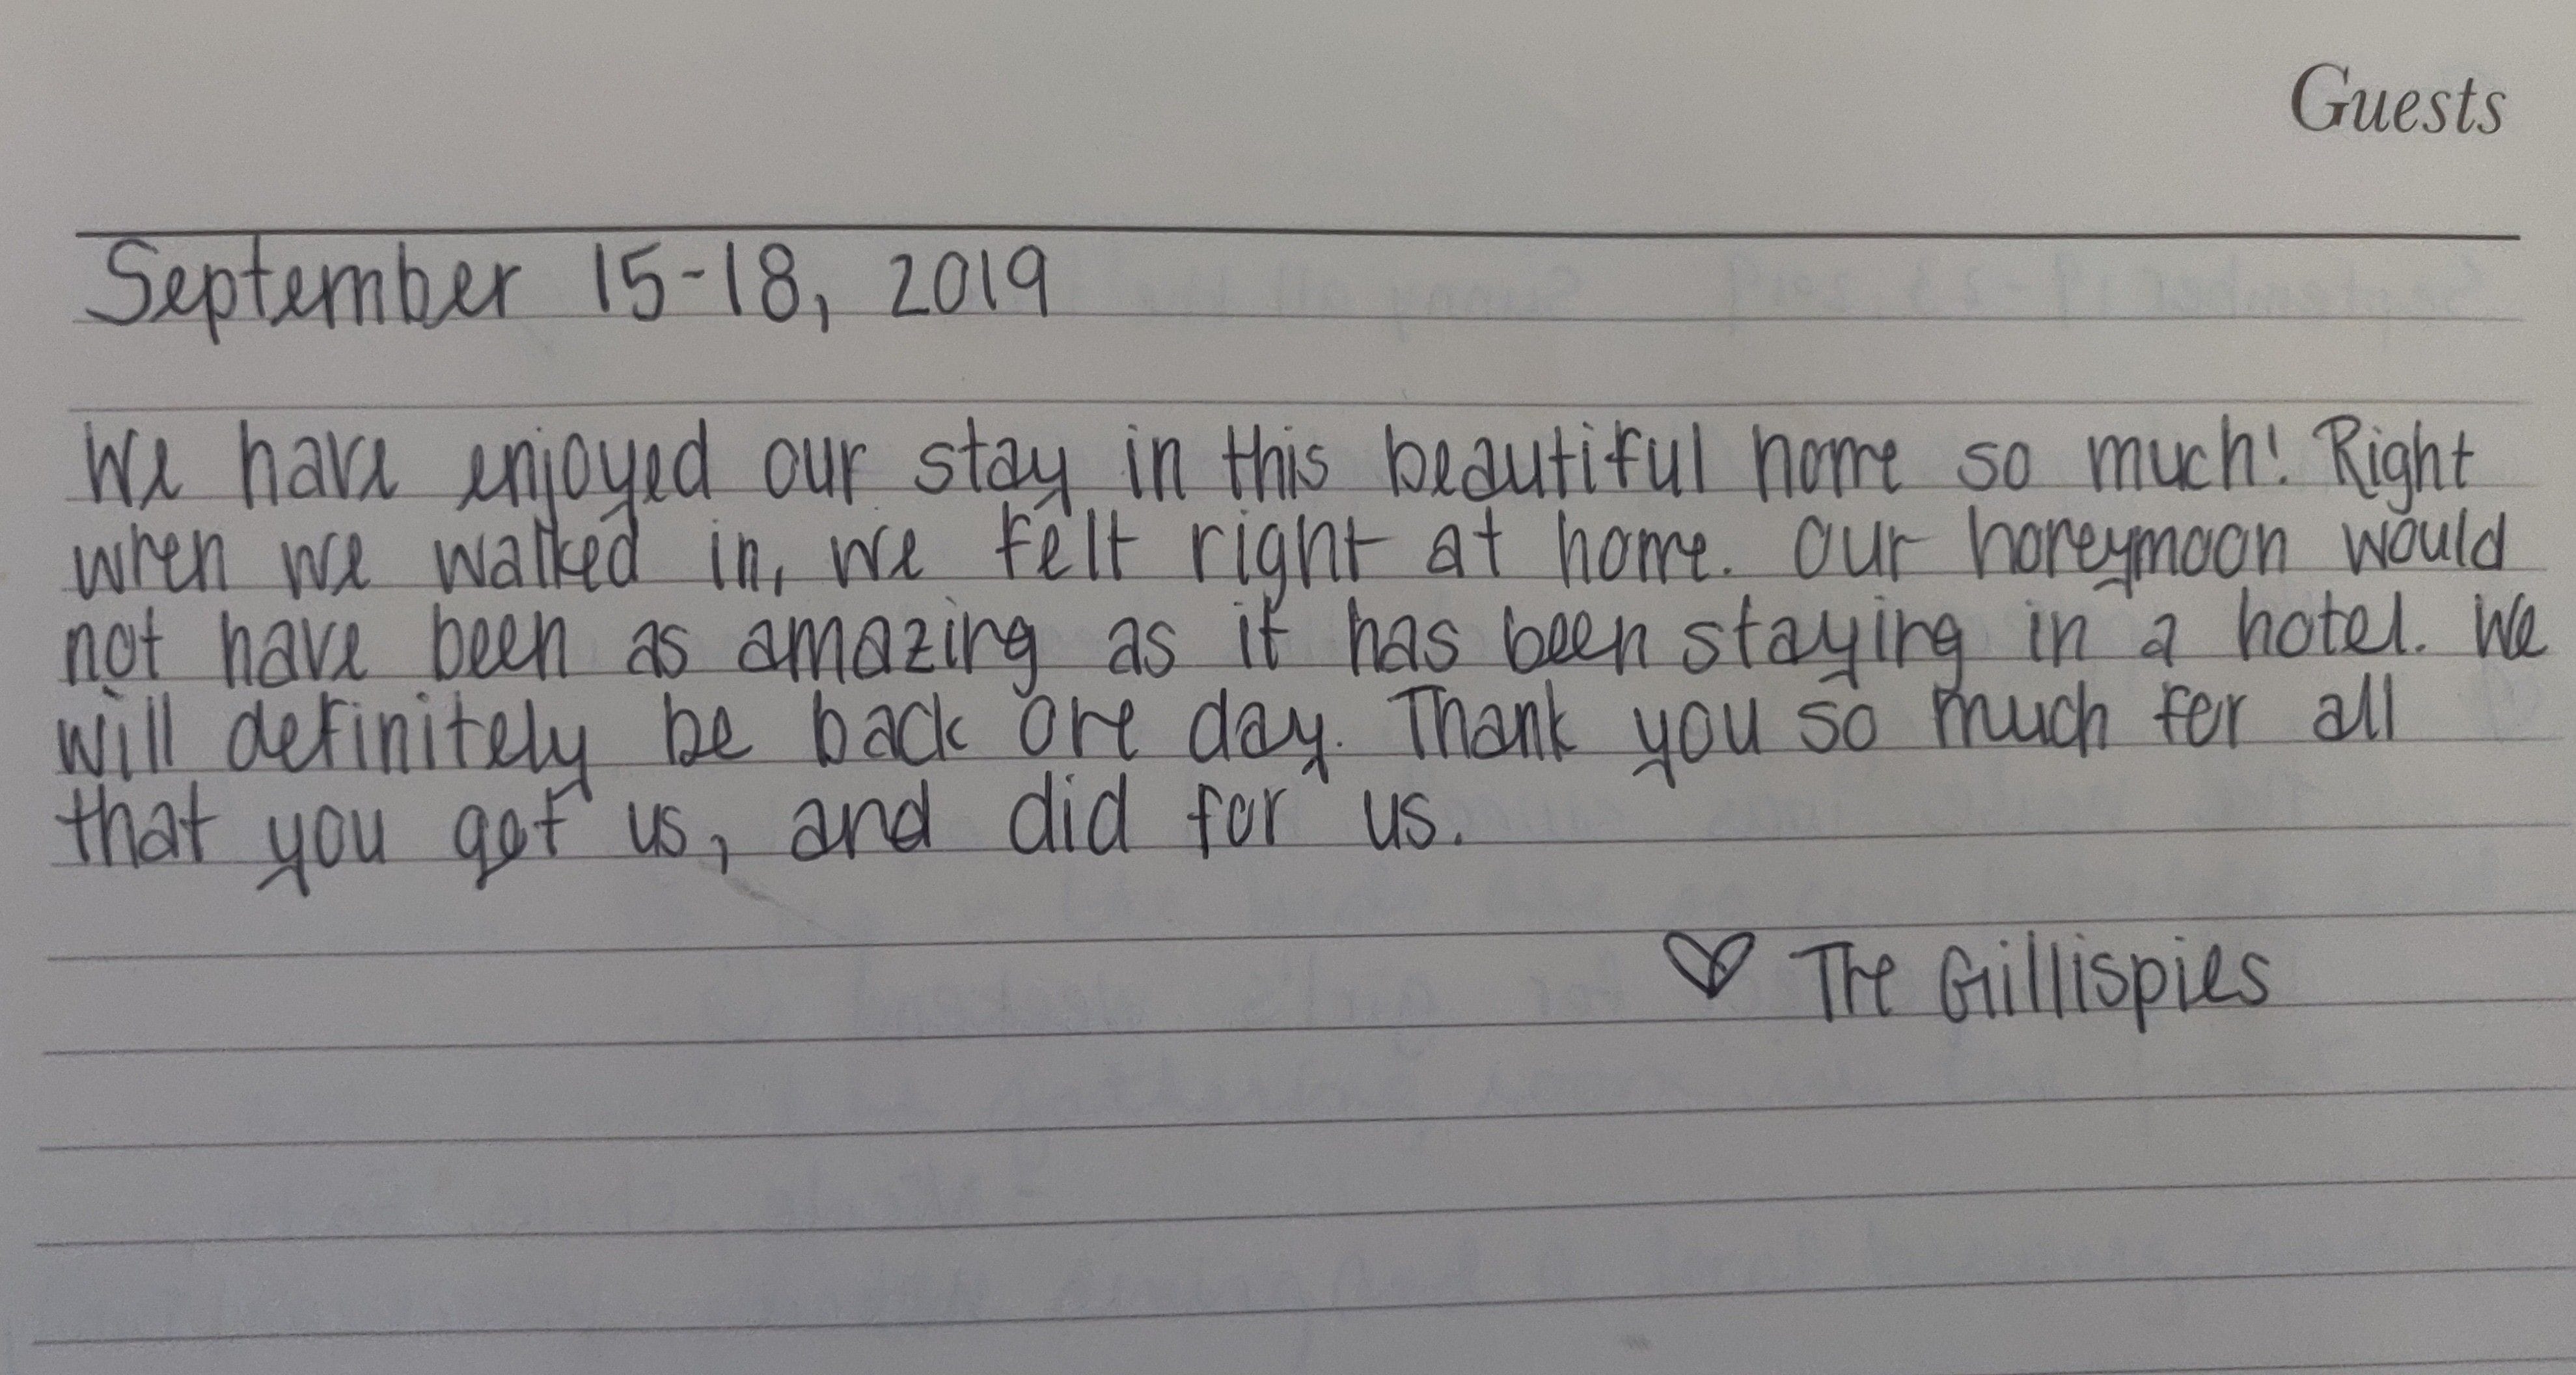 Guests
September 15-18, 2019
We have enjoyed our stay in this beautiful home so much! Right
when we walked in, we felt right at home. Our honeymoon would
not have been as amazing as it has been staying in a hotel. We
will definitely be back one day. Thank you so much for all
that you got us, and did for us.
♡ The Gillispies